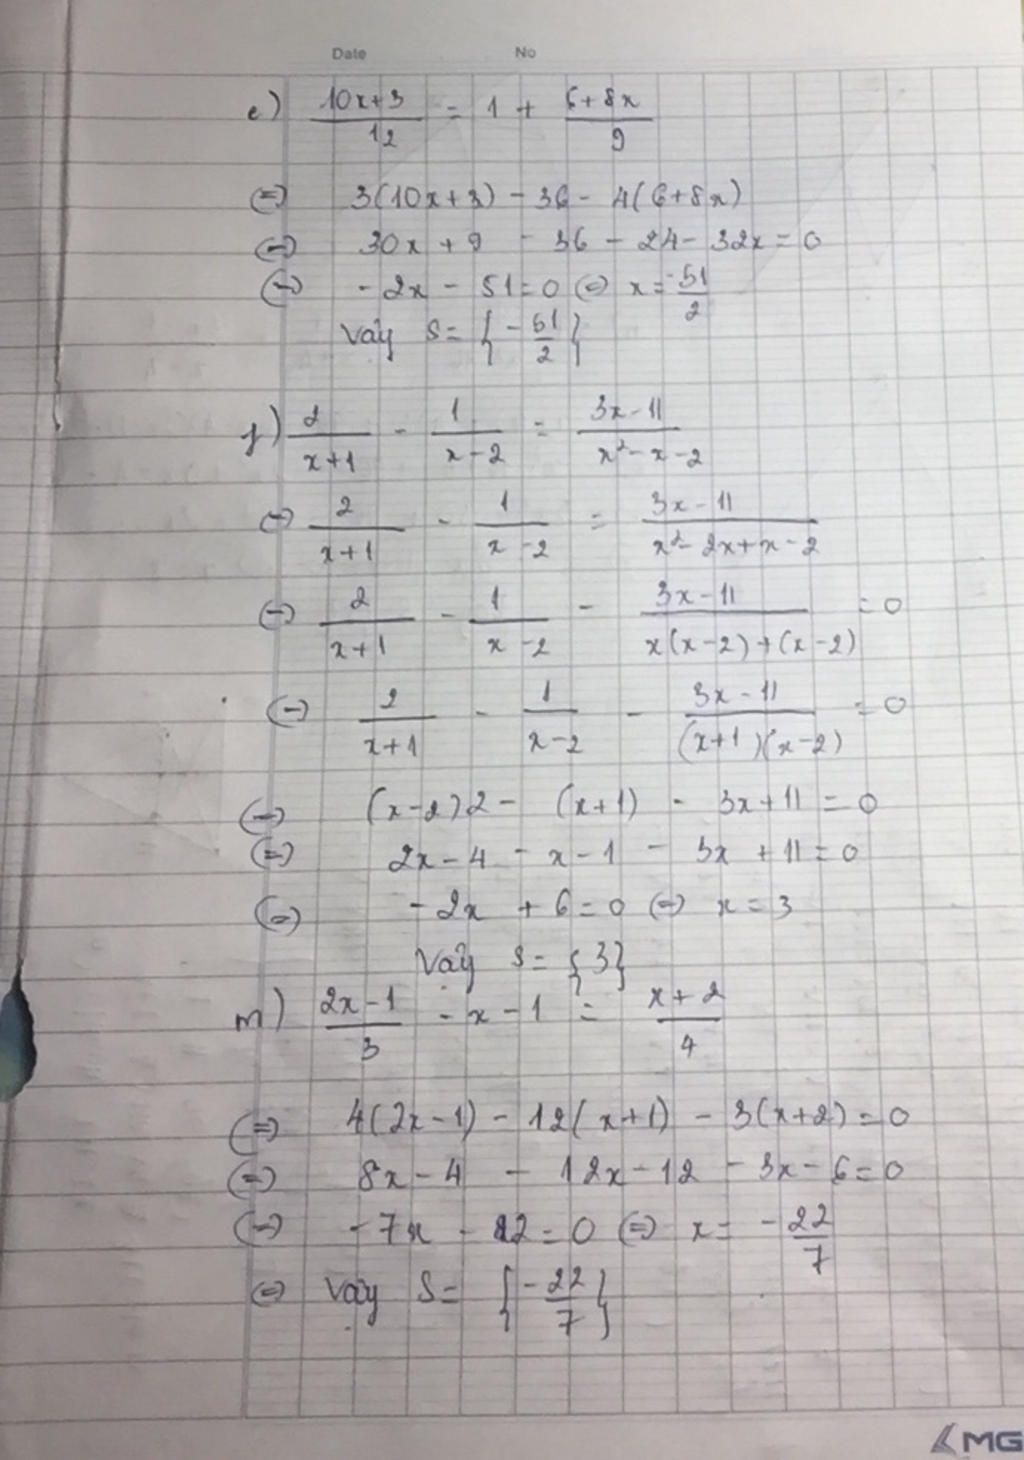 Date No
e) \frac{10x+3}{12} = 1 + \frac{6+8x}{9}
(=) 3(10x+3) - 36 - 4(6+8x)
(=) 30x + 9 - 36 - 24 - 32x = 0
(=) -2x - 51 = 0 (=) x = \frac{-51}{2}
Vậy S = {-\frac{51}{2}}
f) \frac{2}{x+1} - \frac{1}{x-2} = \frac{3x-11}{x²-x-2}
(=) \frac{2}{x+1} - \frac{1}{x-2} = \frac{3x-11}{x²-2x+x-2}
(=) \frac{2}{x+1} - \frac{1}{x-2} - \frac{3x-11}{x(x-2)+(x-2)} = 0
(=) \frac{2}{x+1} - \frac{1}{x-2} - \frac{3x-11}{(x+1)(x-2)} = 0
(=) (x-2)2 - (x+1) - 3x+11 = 0
(=) 2x-4 - x-1 - 3x + 11 = 0
(=) -2x + 6 = 0 (=) x = 3
Vậy S = {3}
m) \frac{2x-1}{3} - x - 1 = \frac{x+2}{4}
(=) 4(2x-1) - 12(x+1) - 3(x+2) = 0
(=) 8x-4 - 12x-12 - 3x-6 = 0
(=) -7x - 22 = 0 (=) x = -\frac{22}{7}
(=) Vậy S = {-\frac{22}{7}}
MG